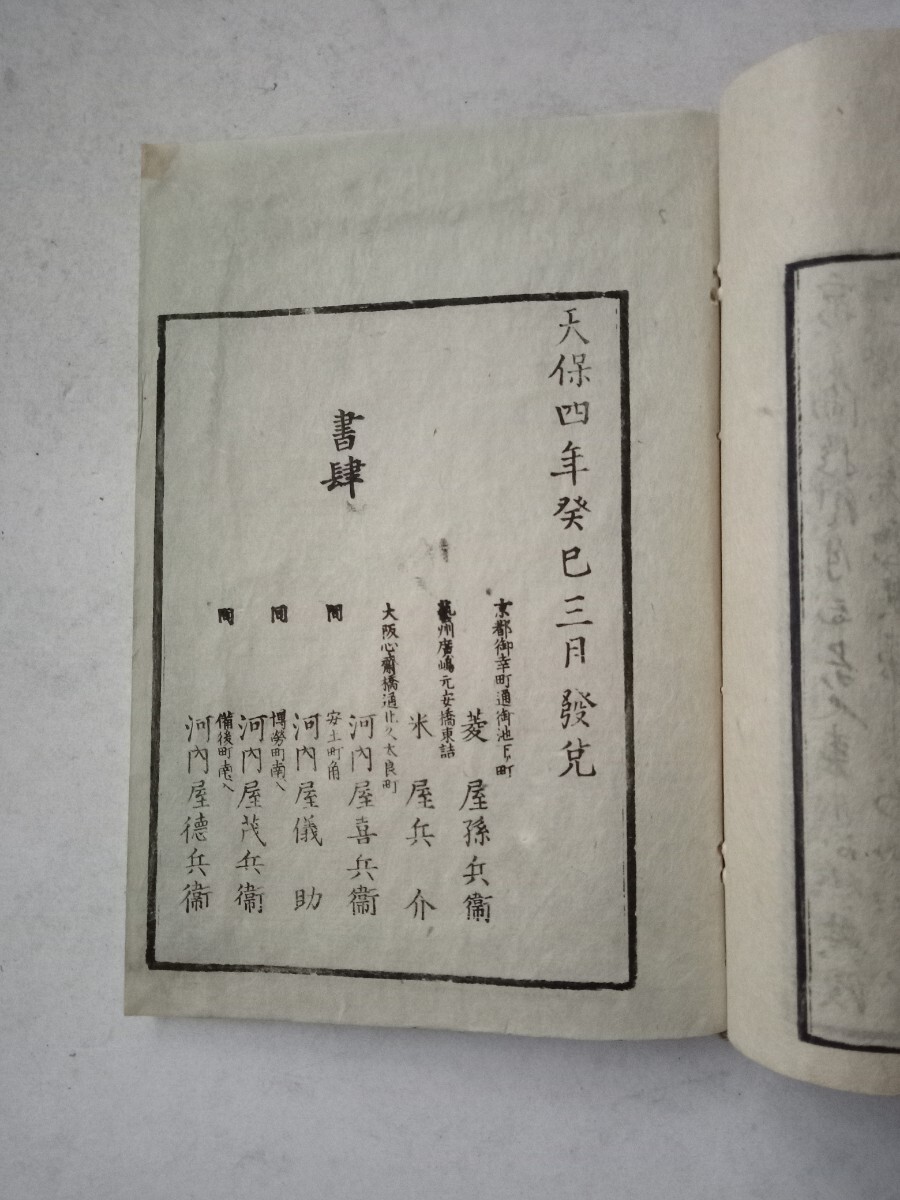 天保四年癸巳三月發兌
京都御幸町通御池下ル町
菱屋孫兵衞
藝州廣嶋元安橋東詰
米屋兵介
大阪心齋橋通北久太良町
河内屋喜兵衞
同 安土町角
河内屋儀助
同 博勞町南ヘ入
河内屋茂兵衞
同 備後町南ヘ入
河内屋德兵衞
書肆